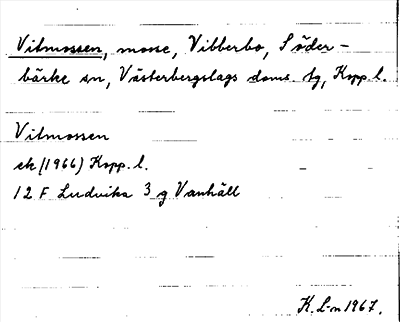 Vitmossen, mosse, Vibberbo, Söder-
bärke sn, Västerbergslags doms. tg, Kopp. l.
Vitmossen
ek (1966) Kopp. l.
12 F Ludvika 3 g Vanhäll
K. L-n 1967.